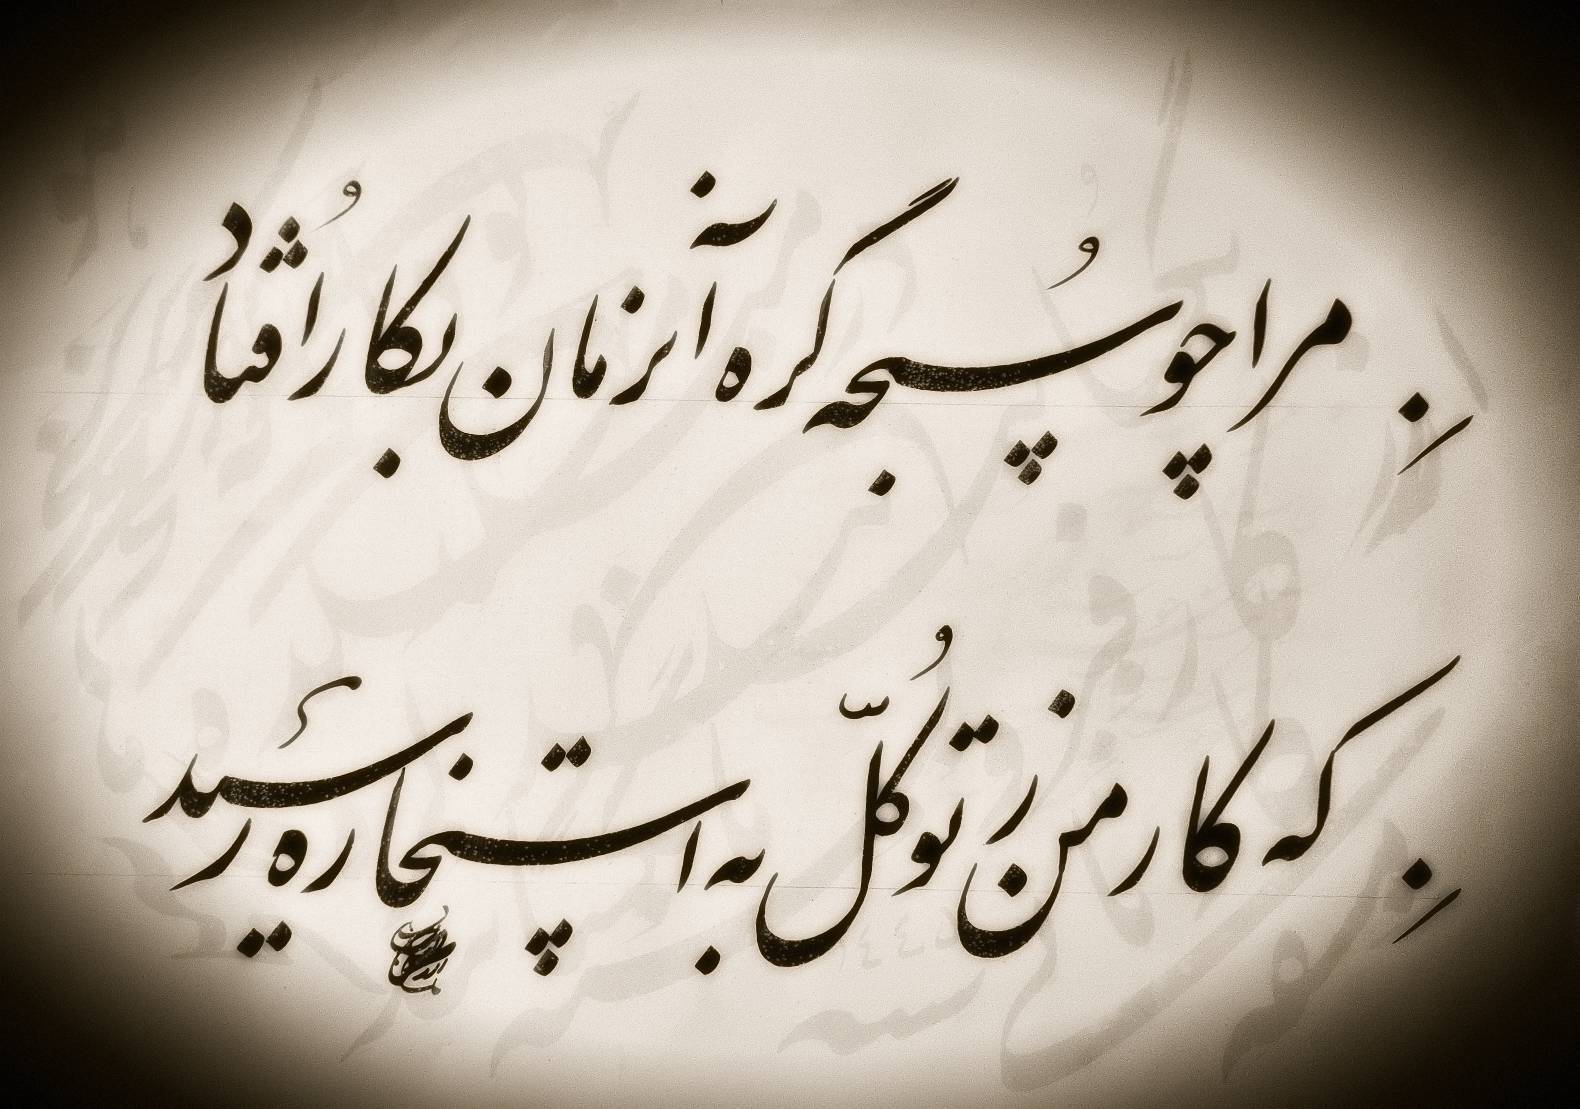 مرا چو سبحه گره آنزمان بکار افتاد
که کار من ز توکّل به استخاره رسید